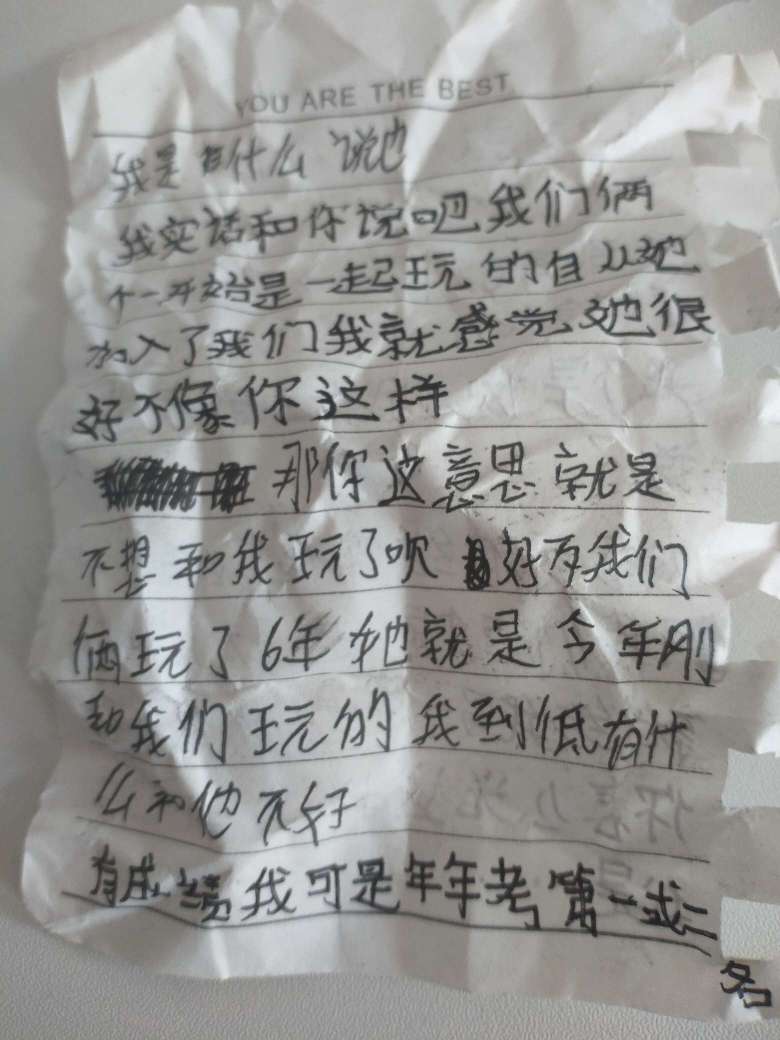 YOU ARE THE BEST
我是有什么说
我实话和你说吧我们俩
个一开始是一起玩的自从她
加入了我们我就感觉她很
好不像你这样
那你这意思就是
不想和我玩了呗好歹我们
俩玩了6年她就是今年刚
和我们玩的我到低有什
么和他不好
有成绩我可是年年考第一或二
名